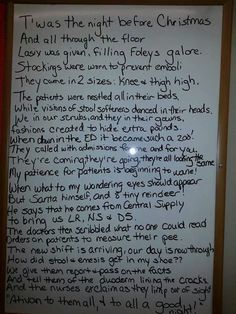 T'was the night before Christmas
And all through the floor
Lasix was given, filling Foleys galore.
Stockings were worn to prevent emboli
They came in 2 sizes: Knee & thigh high.
The patients were nestled all in their beds,
While visions of stool softeners danced in their heads.
We in our scrubs, and they in their gowns,
fashions created to hide extra pounds.
When down in the ED it became such a zoo!
They called with admissions for me and for you.
They're coming they're going, they're all looking the same
My patience for patients is beginning to wane!
When what to my wondering eyes should appear
But Santa himself, and 8 tiny reindeer
He says that he comes from Central Supply
to bring us LR, NS & D5.
The doctors then scribbled what no one could read
Orders on patients to measure their pee.
The new shift is arriving, our day is now through
How did stool & emesis get in my shoe??
We give them report & pass on the facts
And tell them of the duoderm lining the cracks
And the nurses exclaim as they limp out of sight
"Ativan to them all, & to all a good night!"